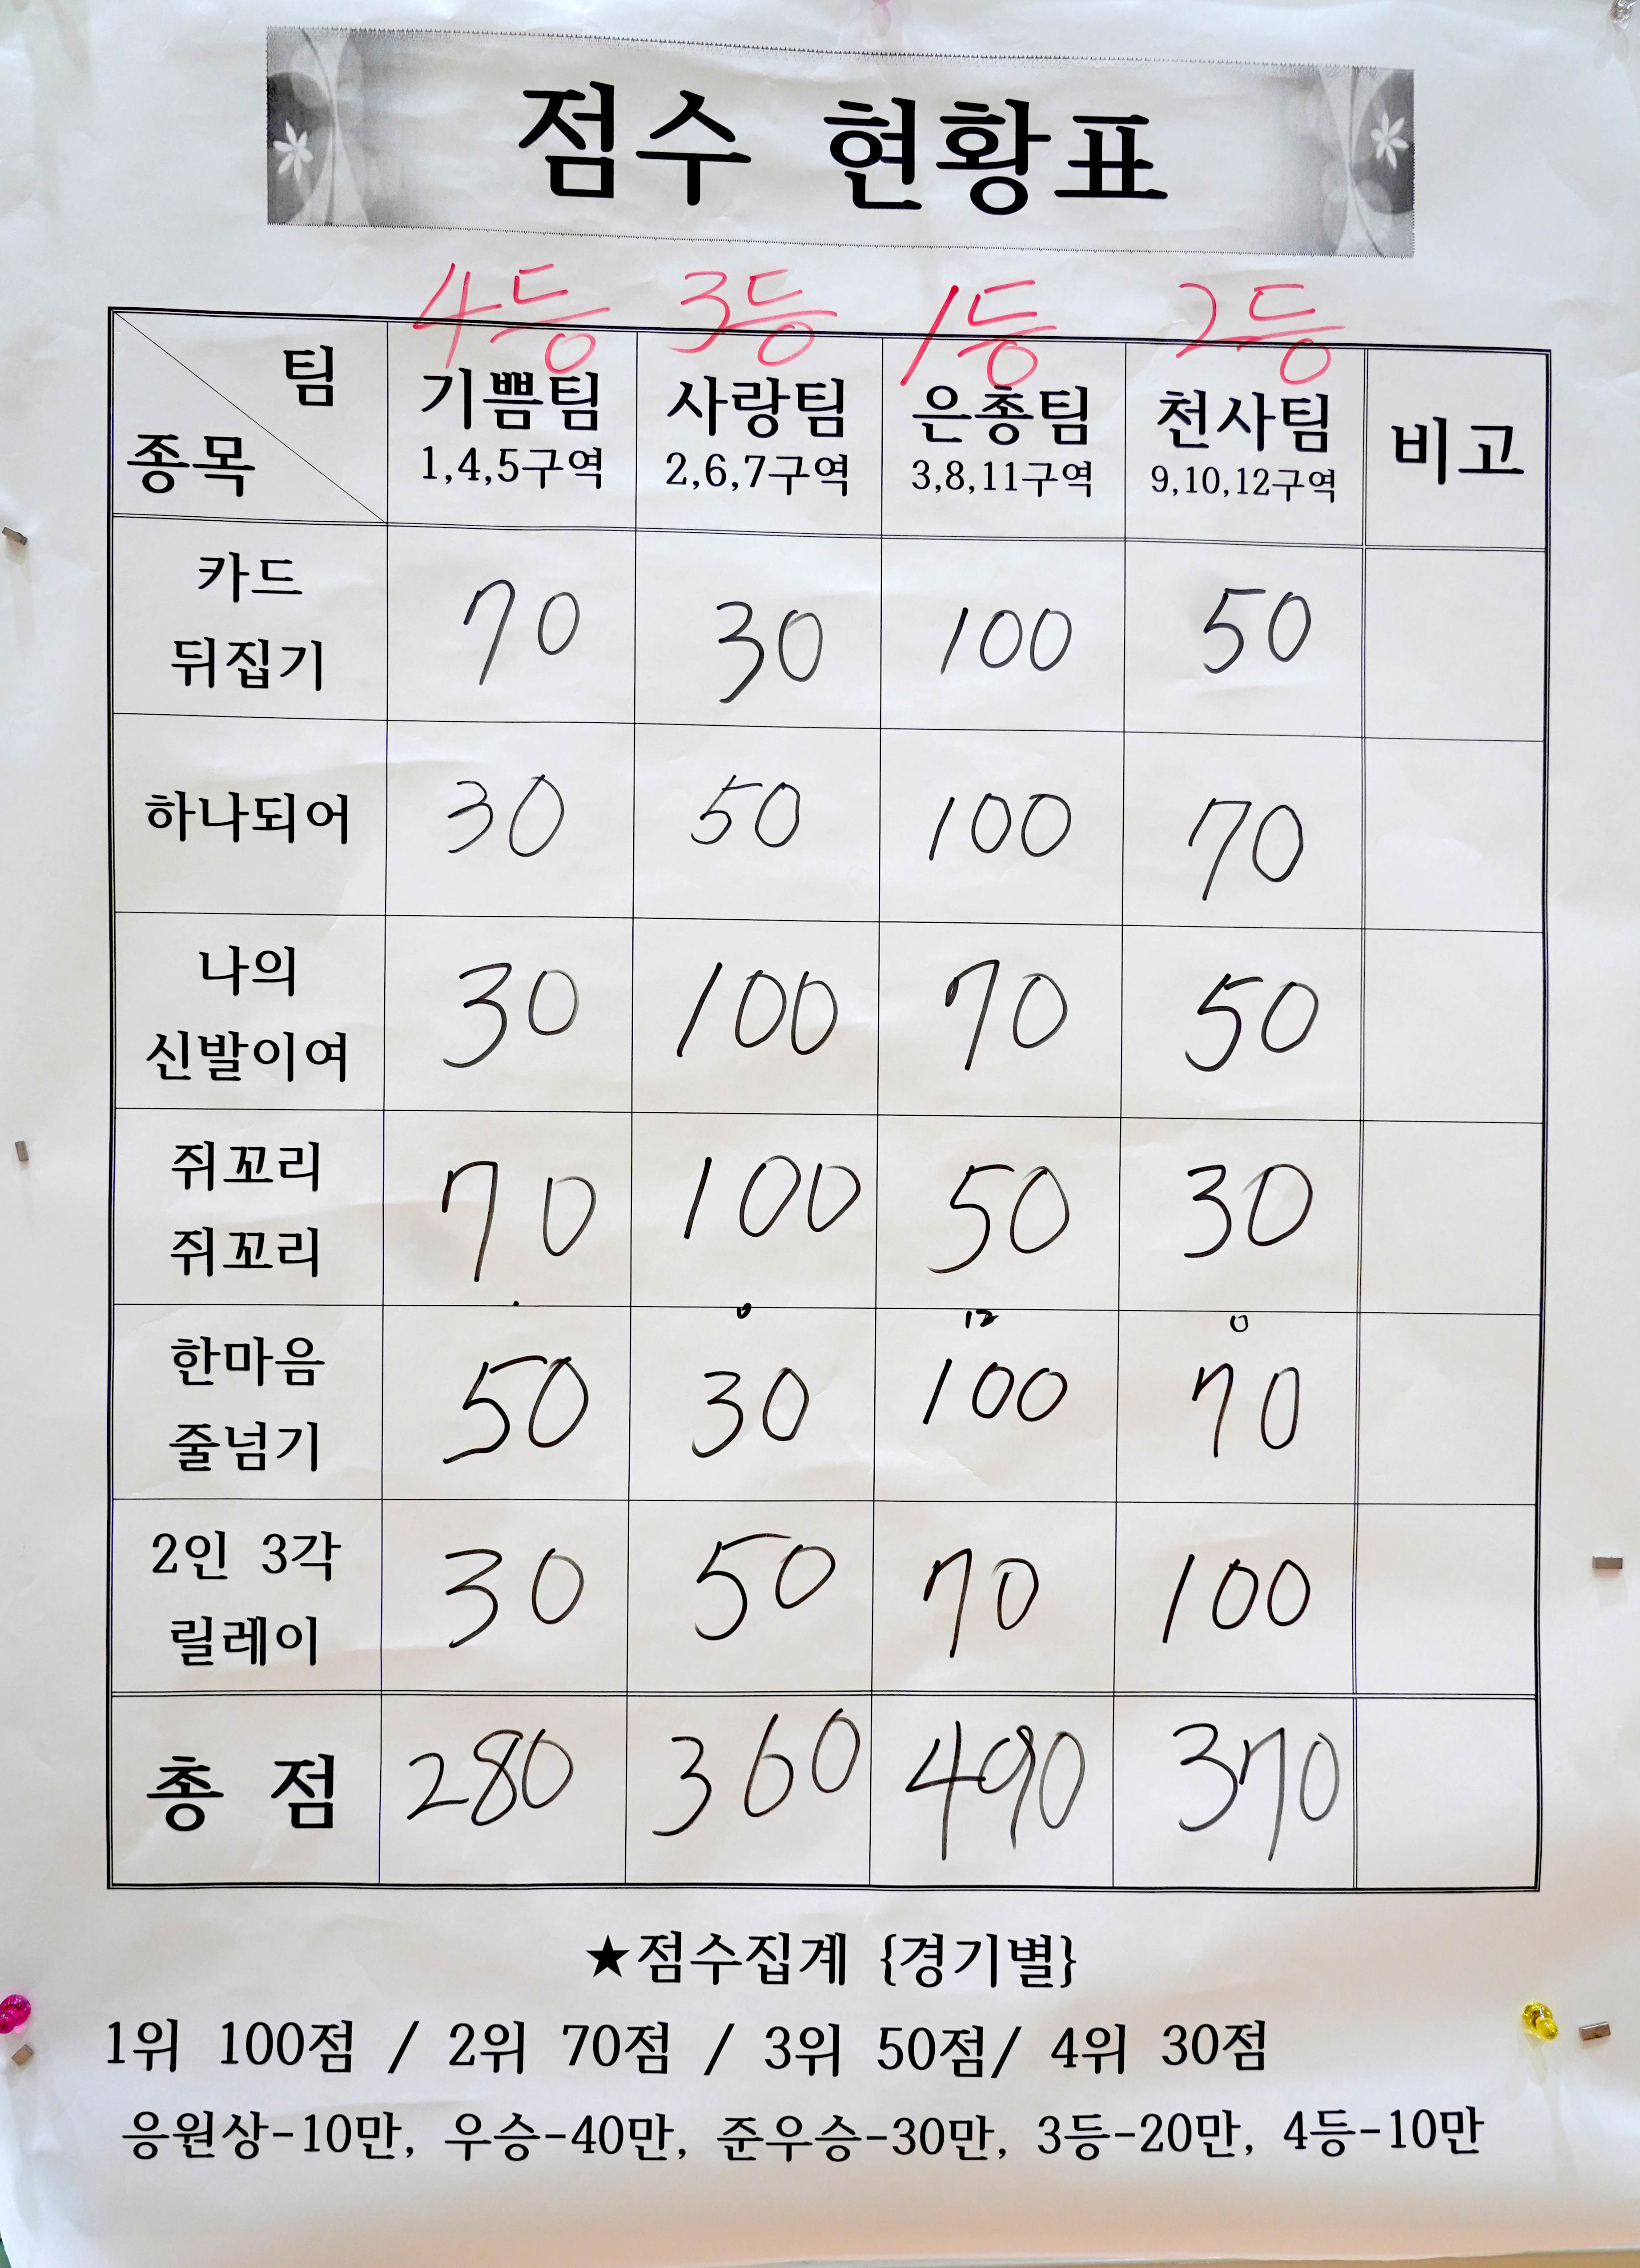 점수 현황표
4등 3등 1등 2등
팀 기쁨팀 사랑팀 은총팀 천사팀 비고
종목 1,4,5구역 2,6,7구역 3,8,11구역 9,10,12구역
카드
뒤집기 70 30 100 50
하나되어 30 50 100 70
나의
신발이여 30 100 70 50
쥐꼬리
쥐꼬리 70 100 50 30
0 12 0
한마음
줄넘기 50 30 100 70
2인 3각
릴레이 30 50 70 100
총 점 280 360 490 370
★점수집계 {경기별}
1위 100점 / 2위 70점 / 3위 50점/ 4위 30점
응원상-10만, 우승-40만, 준우승-30만, 3등-20만, 4등-10만